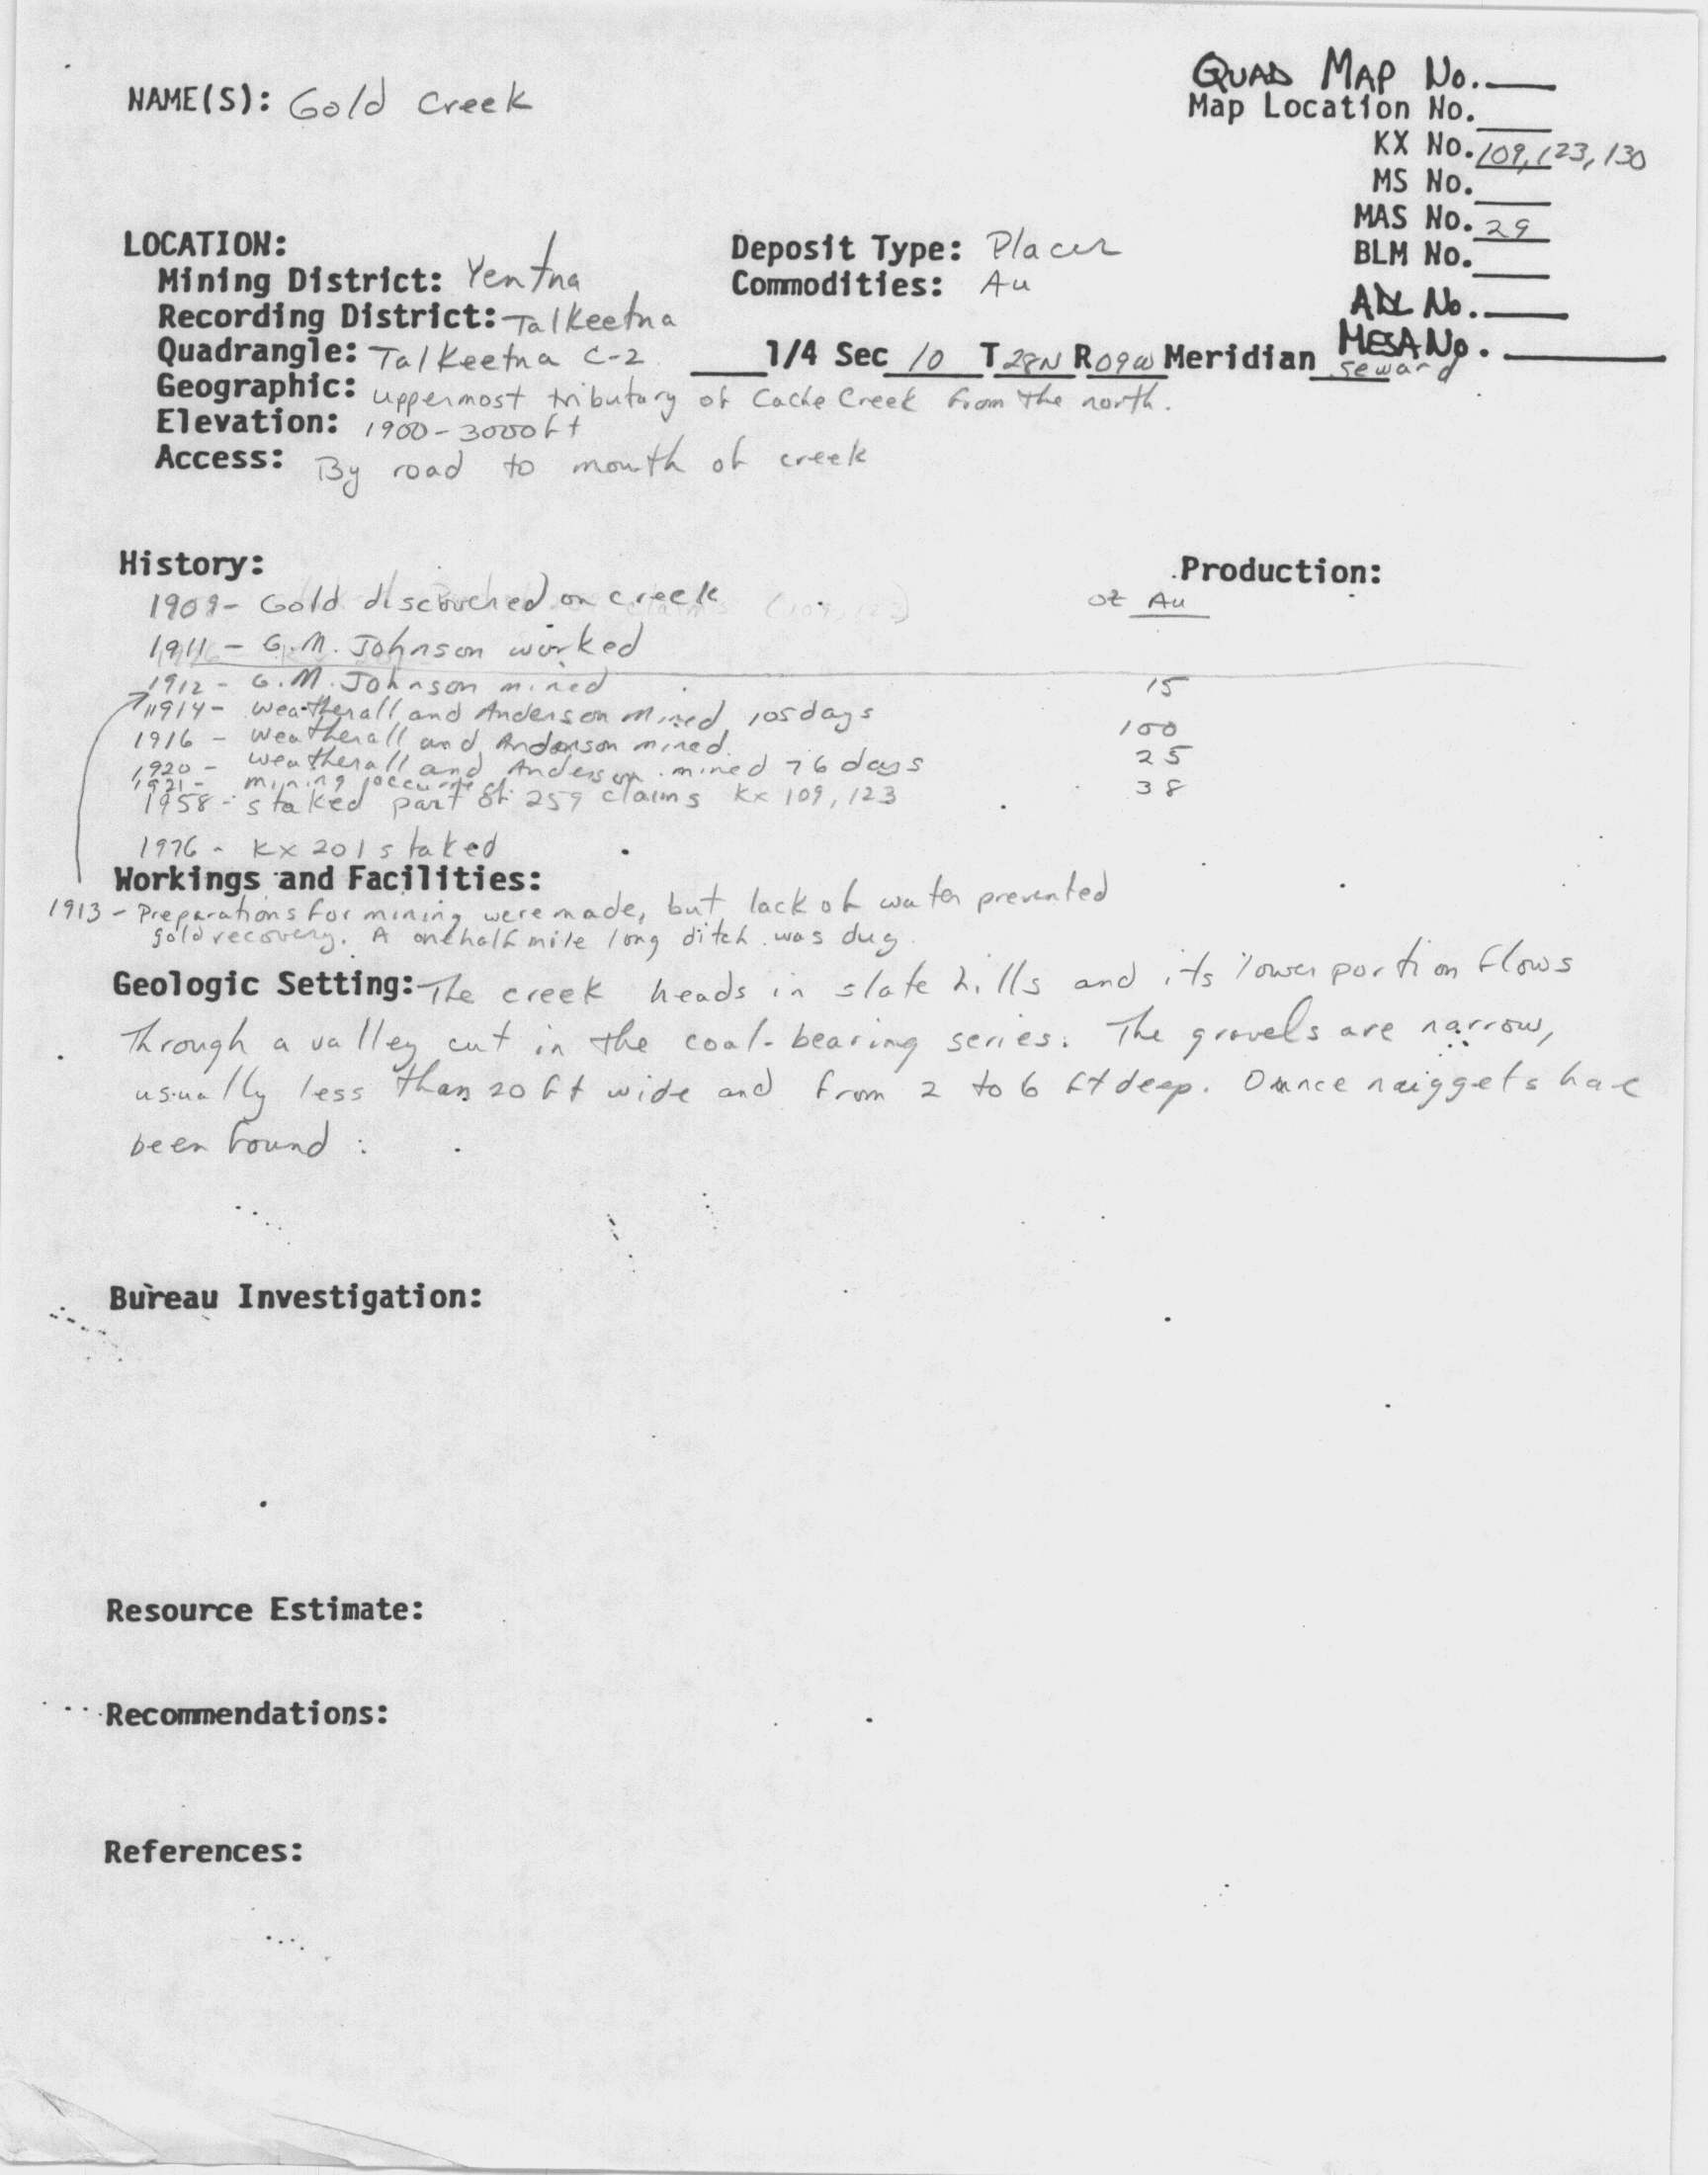 QUAD MAP No.
NAME(S): Gold Creek
Map Location No.
KX No. 109, 123, 130
MS No.
MAS No. 29
LOCATION:
Deposit Type: Placer
BLM No.
Mining District: Yentna
Commodities: Au
ADL No.
Recording District: Talkeetna
MESA No.
Quadrangle: Talkeetna C-2 1/4 Sec 10 T 28N R 09W Meridian Seward
Geographic: uppermost tributary of Cache Creek from the north.
Elevation: 1900-3000ft
Access: By road to mouth of creek
History: Production:
1909- Gold discovered on creek oz Au
1911 - G.M. Johnson worked
1912 - G.M. Johnson mined 15
1914- Weatherall and Anderson mined 105 days 100
1916 - Weatherall and Anderson mined. 25
1920 - Weatherall and Anderson mined 76 days 38
1921- mining occurred
1958 - staked part of 259 claims Kx 109, 123
1976 - Kx 201 staked
Workings and Facilities:
1913 - Preparations for mining were made, but lack of water prevented
gold recovery. A one half mile long ditch was dug.
Geologic Setting: The creek heads in slate hills and its lower portion flows
through a valley cut in the coal-bearing series. The gravels are narrow,
usually less than 20 ft wide and from 2 to 6 ft deep. Ounce nuggets have
been found.
Bureau Investigation:
Resource Estimate:
Recommendations:
References: